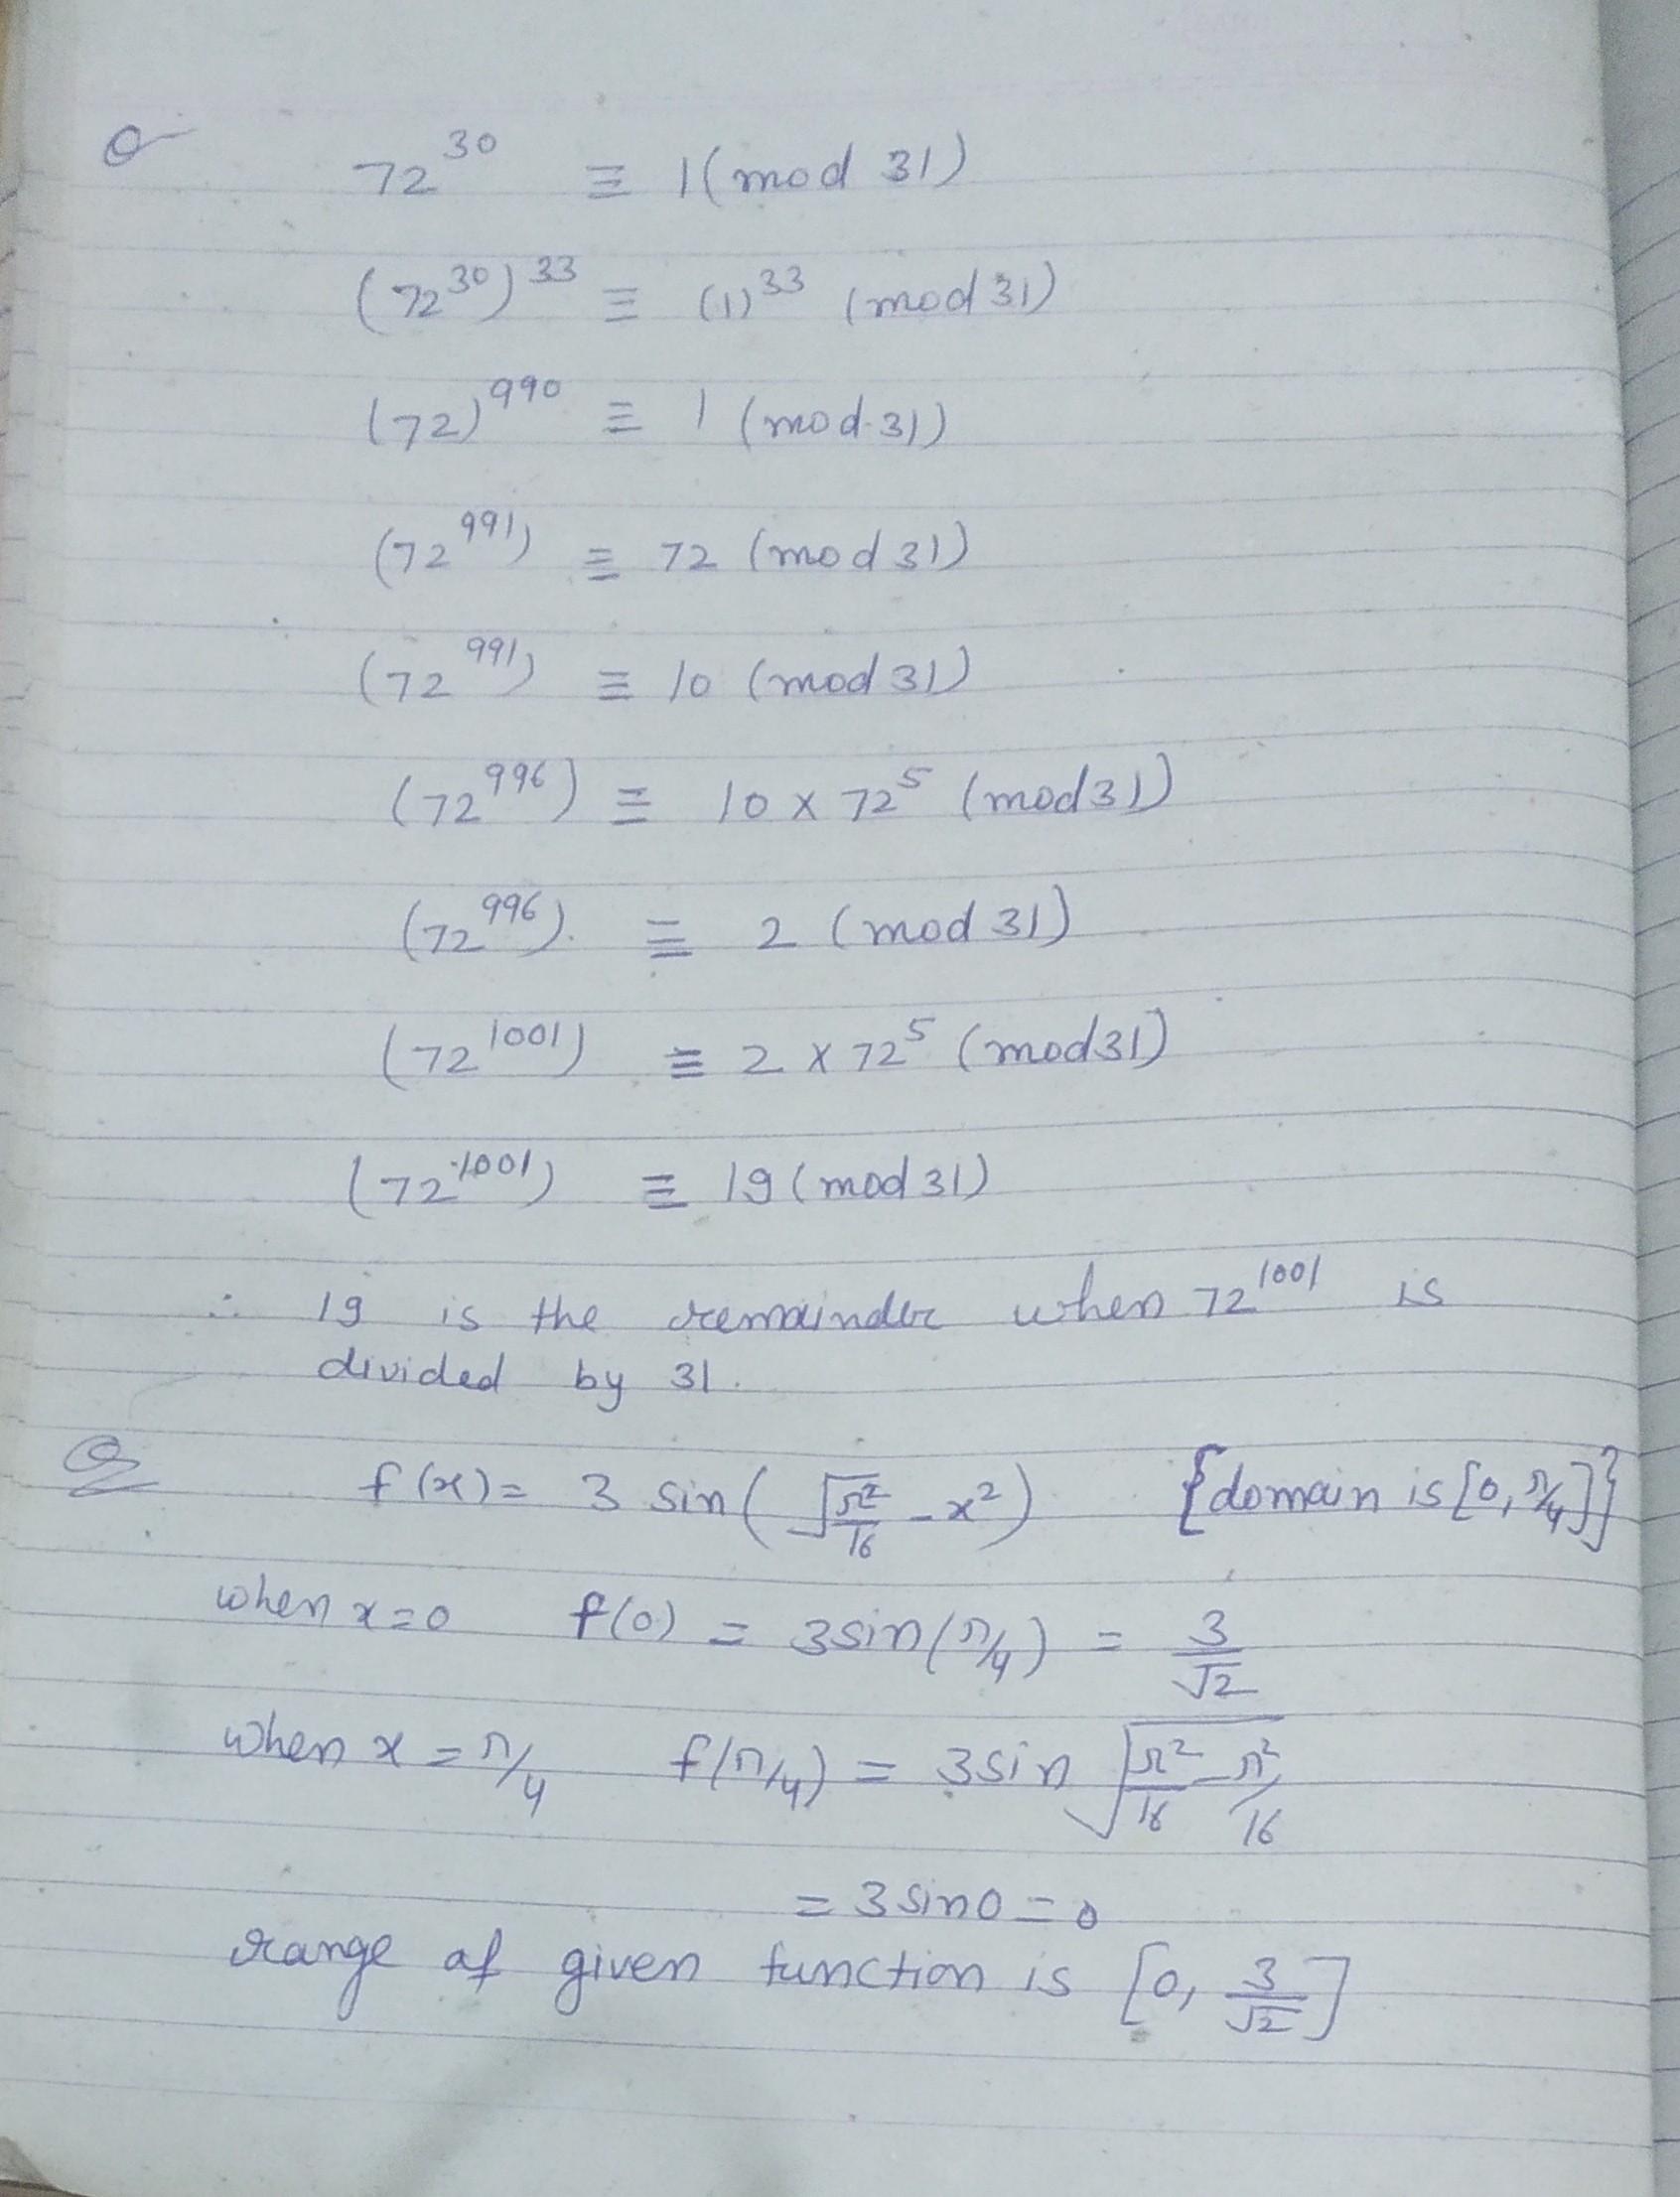 Q 72^30 ≡ 1(mod 31)
(72^30)^33 ≡ (1)^33 (mod 31)
(72)^990 ≡ 1 (mod 31)
(72^991) ≡ 72 (mod 31)
(72^991) ≡ 10 (mod 31)
(72^996) ≡ 10 x 72^5 (mod 31)
(72^996) ≡ 2 (mod 31)
(72^1001) ≡ 2 x 72^5 (mod 31)
(72^1001) ≡ 19 (mod 31)
∴ 19 is the remainder when 72^1001 is
divided by 31.
Q f(x) = 3 sin(√π²/16 - x²) {domain is [0, π/4]}
when x=0 f(0) = 3sin(π/4) = 3/√2
when x = π/4 f(π/4) = 3sin √(π²/16 - π²/16)
= 3 sin0 = 0
range of given function is [0, 3/√2]